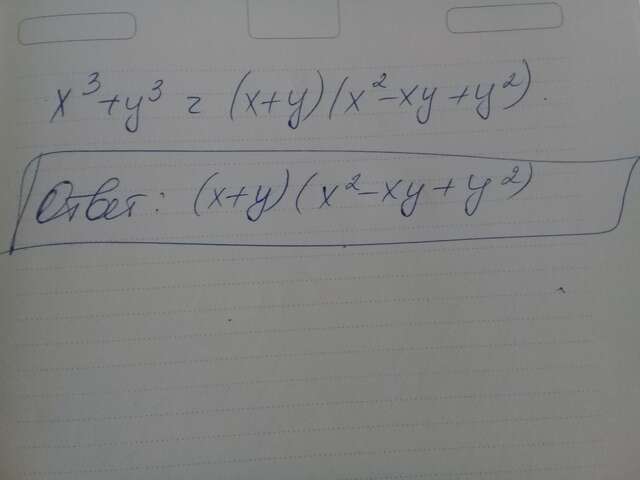 x³+y³ = (x+y)(x²-xy+y²).
Ответ: (x+y)(x²-xy+y²)